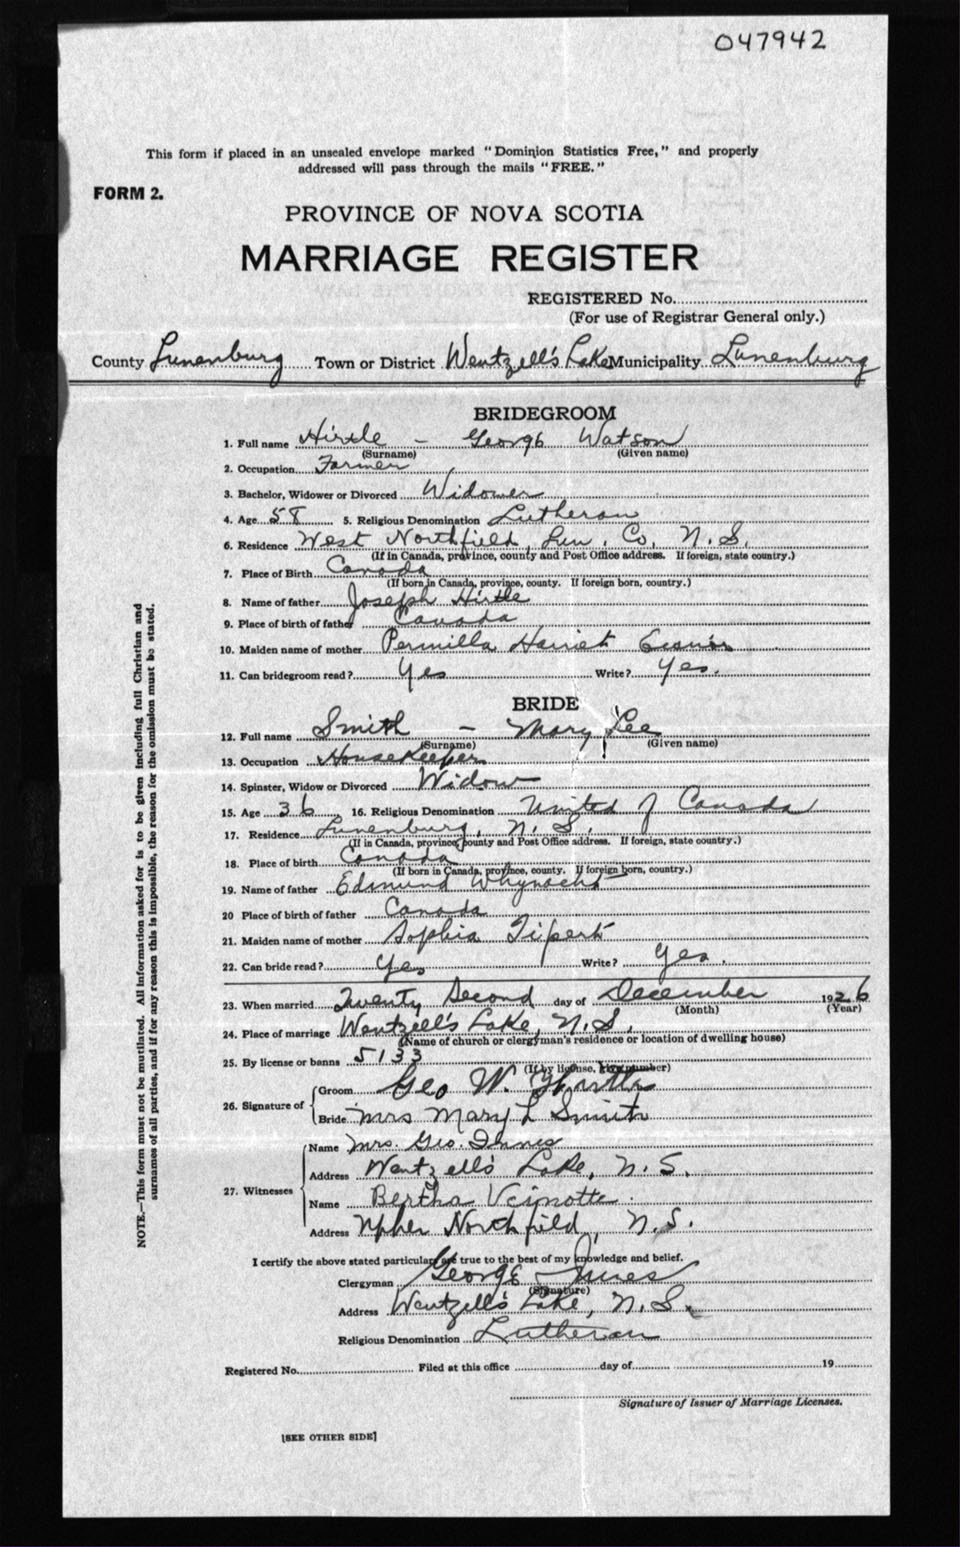 047942
This form if placed in an unsealed envelope marked "Dominion Statistics Free," and properly
addressed will pass through the mails "FREE."
FORM 2.
PROVINCE OF NOVA SCOTIA
MARRIAGE REGISTER
REGISTERED No.
(For use of Registrar General only.)
County Lunenburg Town or District Wentzell's Lake Municipality Lunenburg
BRIDEGROOM
1. Full name Hirtle - George Watson
(Surname) (Given name)
2. Occupation Farmer
3. Bachelor, Widower or Divorced Widower
4. Age 58 5. Religious Denomination Lutheran
6. Residence West Northfield, Lun. Co, N.S.
(If in Canada, province, county and Post Office address. If foreign, state country.)
7. Place of Birth Canada
(If born in Canada, province, county. If foreign born, country.)
8. Name of father Joseph Hirtle
9. Place of birth of father Canada
10. Maiden name of mother Permilla Harriet
11. Can bridegroom read? Yes Write? Yes.
BRIDE
12. Full name Smith - Mary Lee
(Surname) (Given name)
13. Occupation Housekeeper
14. Spinster, Widow or Divorced Widow
15. Age 36 16. Religious Denomination United of Canada
17. Residence Lunenburg, N.S.
(If in Canada, province, county and Post Office address. If foreign, state country.)
18. Place of birth Canada
(If born in Canada, province, county. If foreign born, country.)
19. Name of father Edmund Whynacht
20 Place of birth of father Canada
21. Maiden name of mother Sophia Tipert
22. Can bride read? Yes Write? Yes.
23. When married Twenty Second day of December 1926
(Month) (Year)
24. Place of marriage Wentzell's Lake, N.S.
(Name of church or clergyman's residence or location of dwelling house)
25. By license or banns 5133
(If by license, give number)
26. Signature of Groom Geo W. Hirtle
Bride Mrs Mary L Smith
27. Witnesses Name Mrs. Geo. Innes
Address Wentzell's Lake, N.S.
Name Bertha Veinotte.
Address Upher Northfield, N.S.
I certify the above stated particulars are true to the best of my knowledge and belief.
Clergyman George Innes
(Signature)
Address Wentzell's Lake, N.S.
Religious Denomination Lutheran
Registered No. Filed at this office day of 19
Signature of Issuer of Marriage Licenses.
[SEE OTHER SIDE]
NOTE.—This form must not be mutilated. All information asked for is to be given including full Christian and
surnames of all parties, and if for any reason this is impossible, the reason for the omission must be stated.